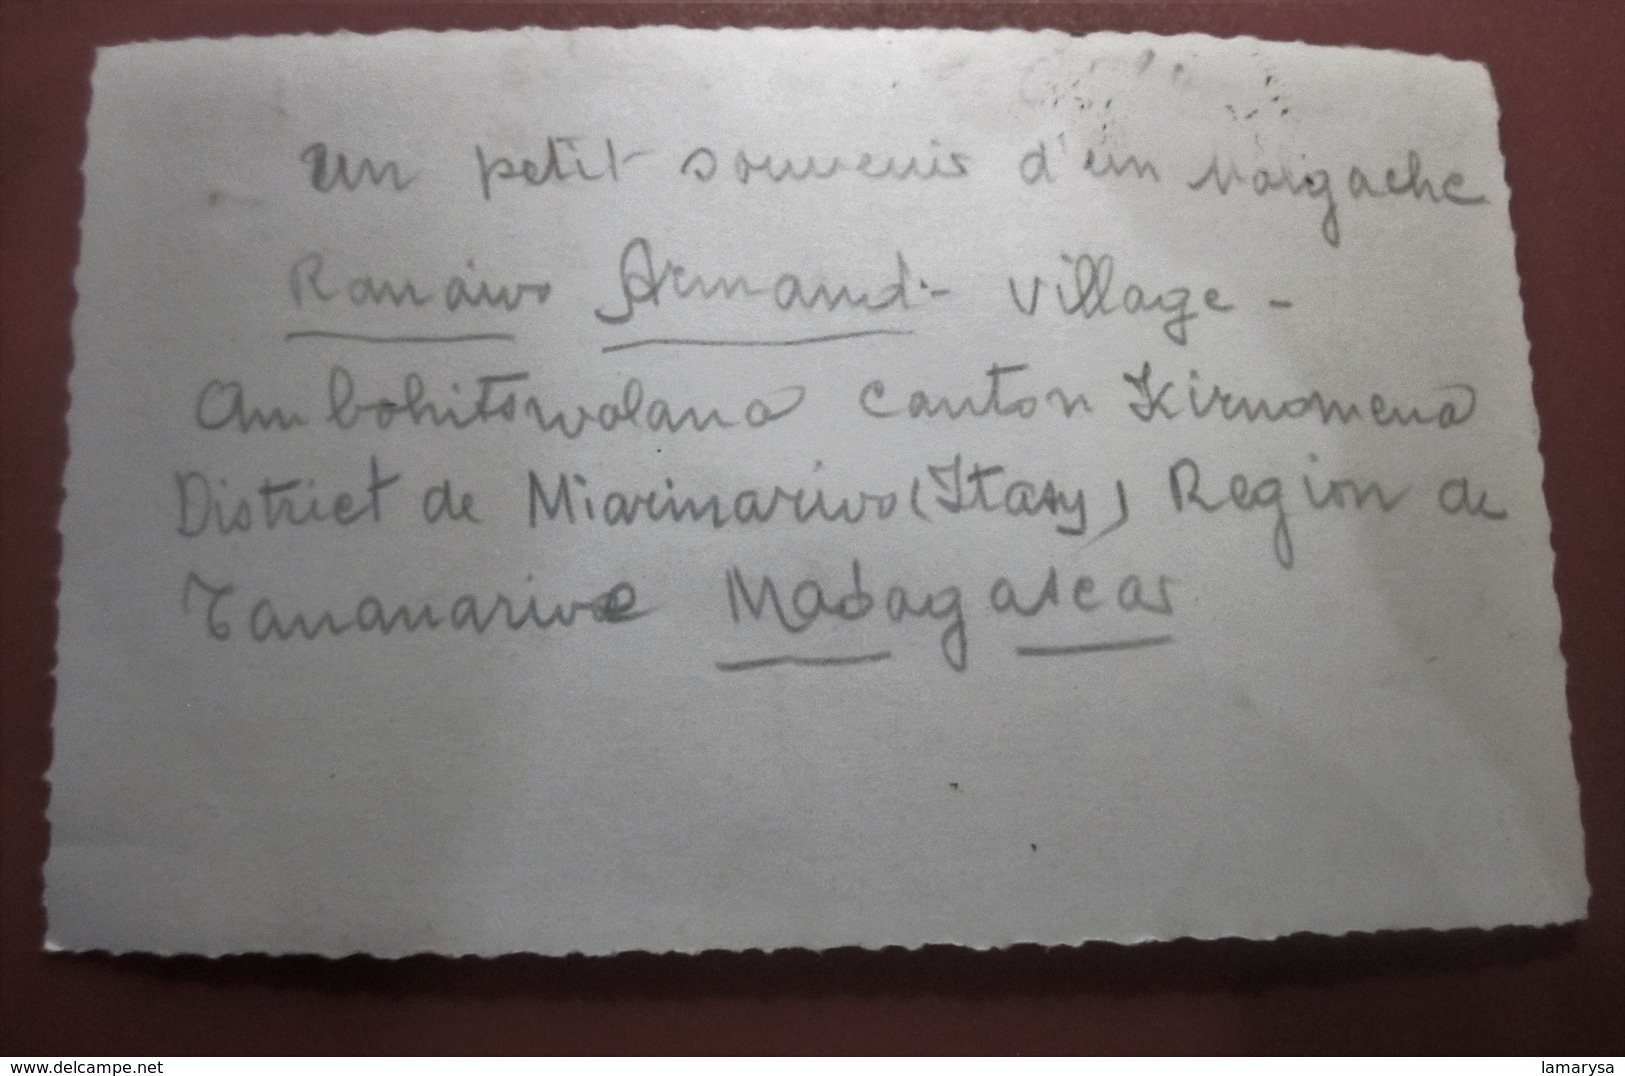 un petit souvenir d'un Malgache
Ranaivo Armand - village -
Ambohitsivalana canton Kirnomena
District de Miarinarivo (Itasy) Region de
Tananarive Madagascar
delcampe.net
lamarysa